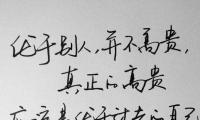 优于别人，并不高贵，
真正的高贵
应该是优于过去的自己